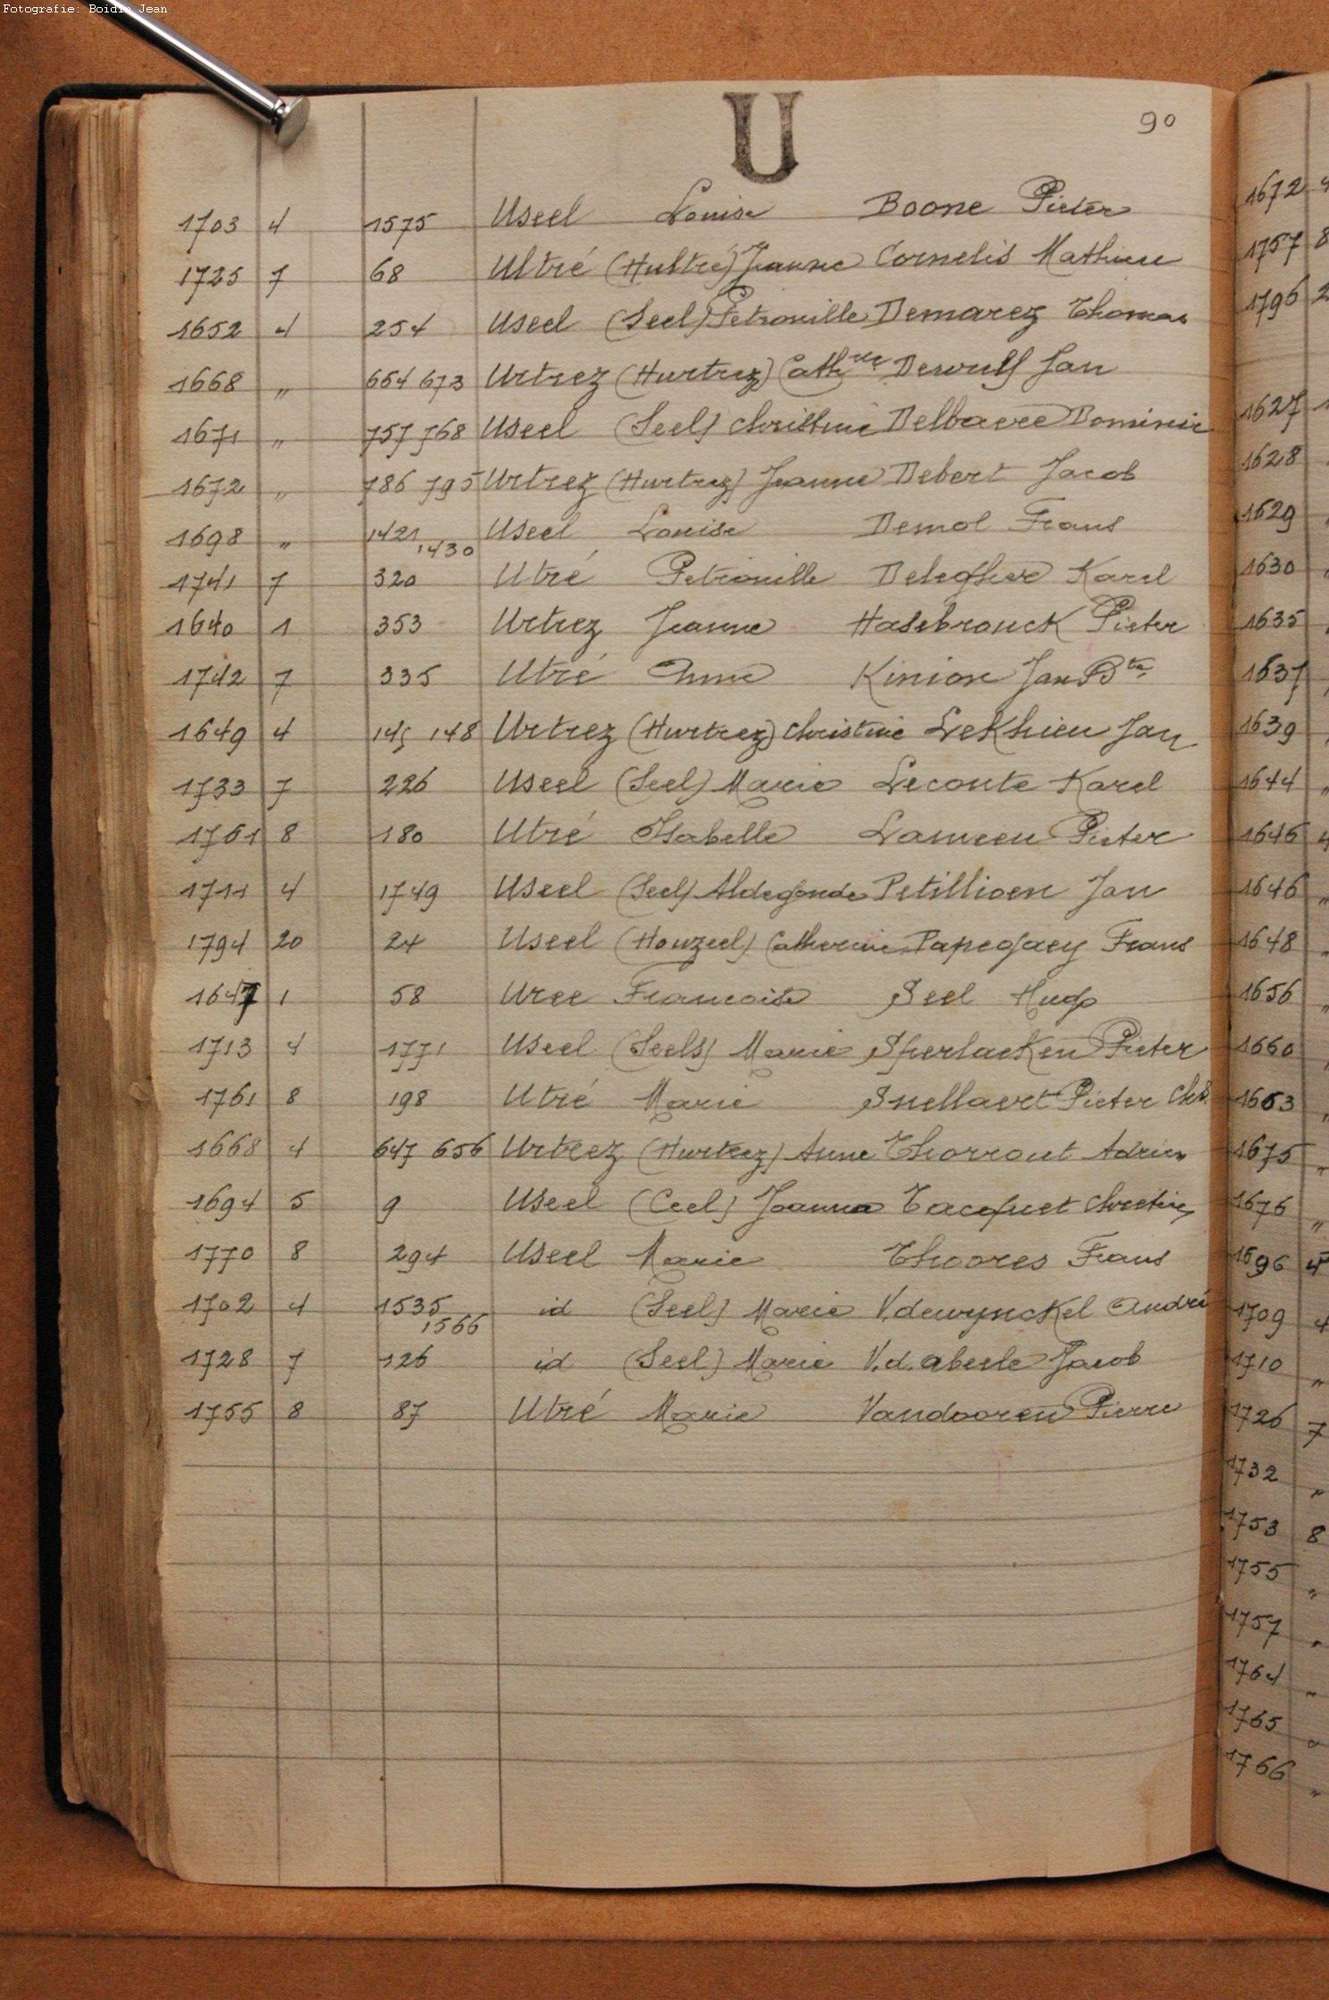 Fotografie: Boidin Jean
U
90
1703 4 1575 Useel Louise Boone Pieter
1725 7 68 Ultré (Hultré) Jeanne Cornelis Mathieu
1652 4 254 Useel (Seel) Petronille Demarez Thomas
1668 „ 664 673 Urtrez (Hurtrez) Cathne Dewulf Jan
1671 „ 757 768 Useel (Seel) Christine Delbaere Dominic
1672 „ 786 795 Urtrez (Hurtrez) Jeanne Debert Jacob
1698 „ 1421 1430 Useel Louise Demol Frans
1741 7 320 Utré Petronille Delegher Karel
1640 1 353 Urtrez Jeanne Hasebrouck Pieter
1742 7 335 Utré Anne Kinion Jan Bte
1649 4 145 148 Urtrez (Hurtrez) Christine LeKhieu Jan
1733 7 226 Useel (Seel) Marie Leconte Karel
1761 8 180 Utré Isabelle Lameeu Pieter
1711 4 1749 Useel (Seel) Aldegonde Petillioen Jan
1794 20 24 Useel (Houzeel) Catherine Papegaey Frans
1647 1 58 Uree Francoise Seel Hugo
1713 4 1771 Useel (Seels) Marie Sperlaeken Pieter
1761 8 198 Utré Marie Snellaert Pieter Chs
1668 4 647 656 Urtrez (Hurtrez) Anne Thorrout Adrien
1694 5 9 Useel (Ceel) Joanna Tacquet Chretien
1770 8 294 Useel Marie Thoores Frans
1702 4 1535 1566 id (Seel) Marie V.dewynckel André
1728 7 126 id (Seel) Marie V.d.abeele Jacob
1755 8 87 Utré Marie Vandooren Pierre
1672
1757 8
1796 2
1627 1
1628
1629
1630
1635
1637
1639
1644 „
1646 4
1646 „
1648
1656 „
1660
1663 „
1675 „
1676 „
1696 4
1709 4
1710 „
1726 7
1732 „
1753 8
1755 „
1757 „
1764 „
1765 „
1766 „